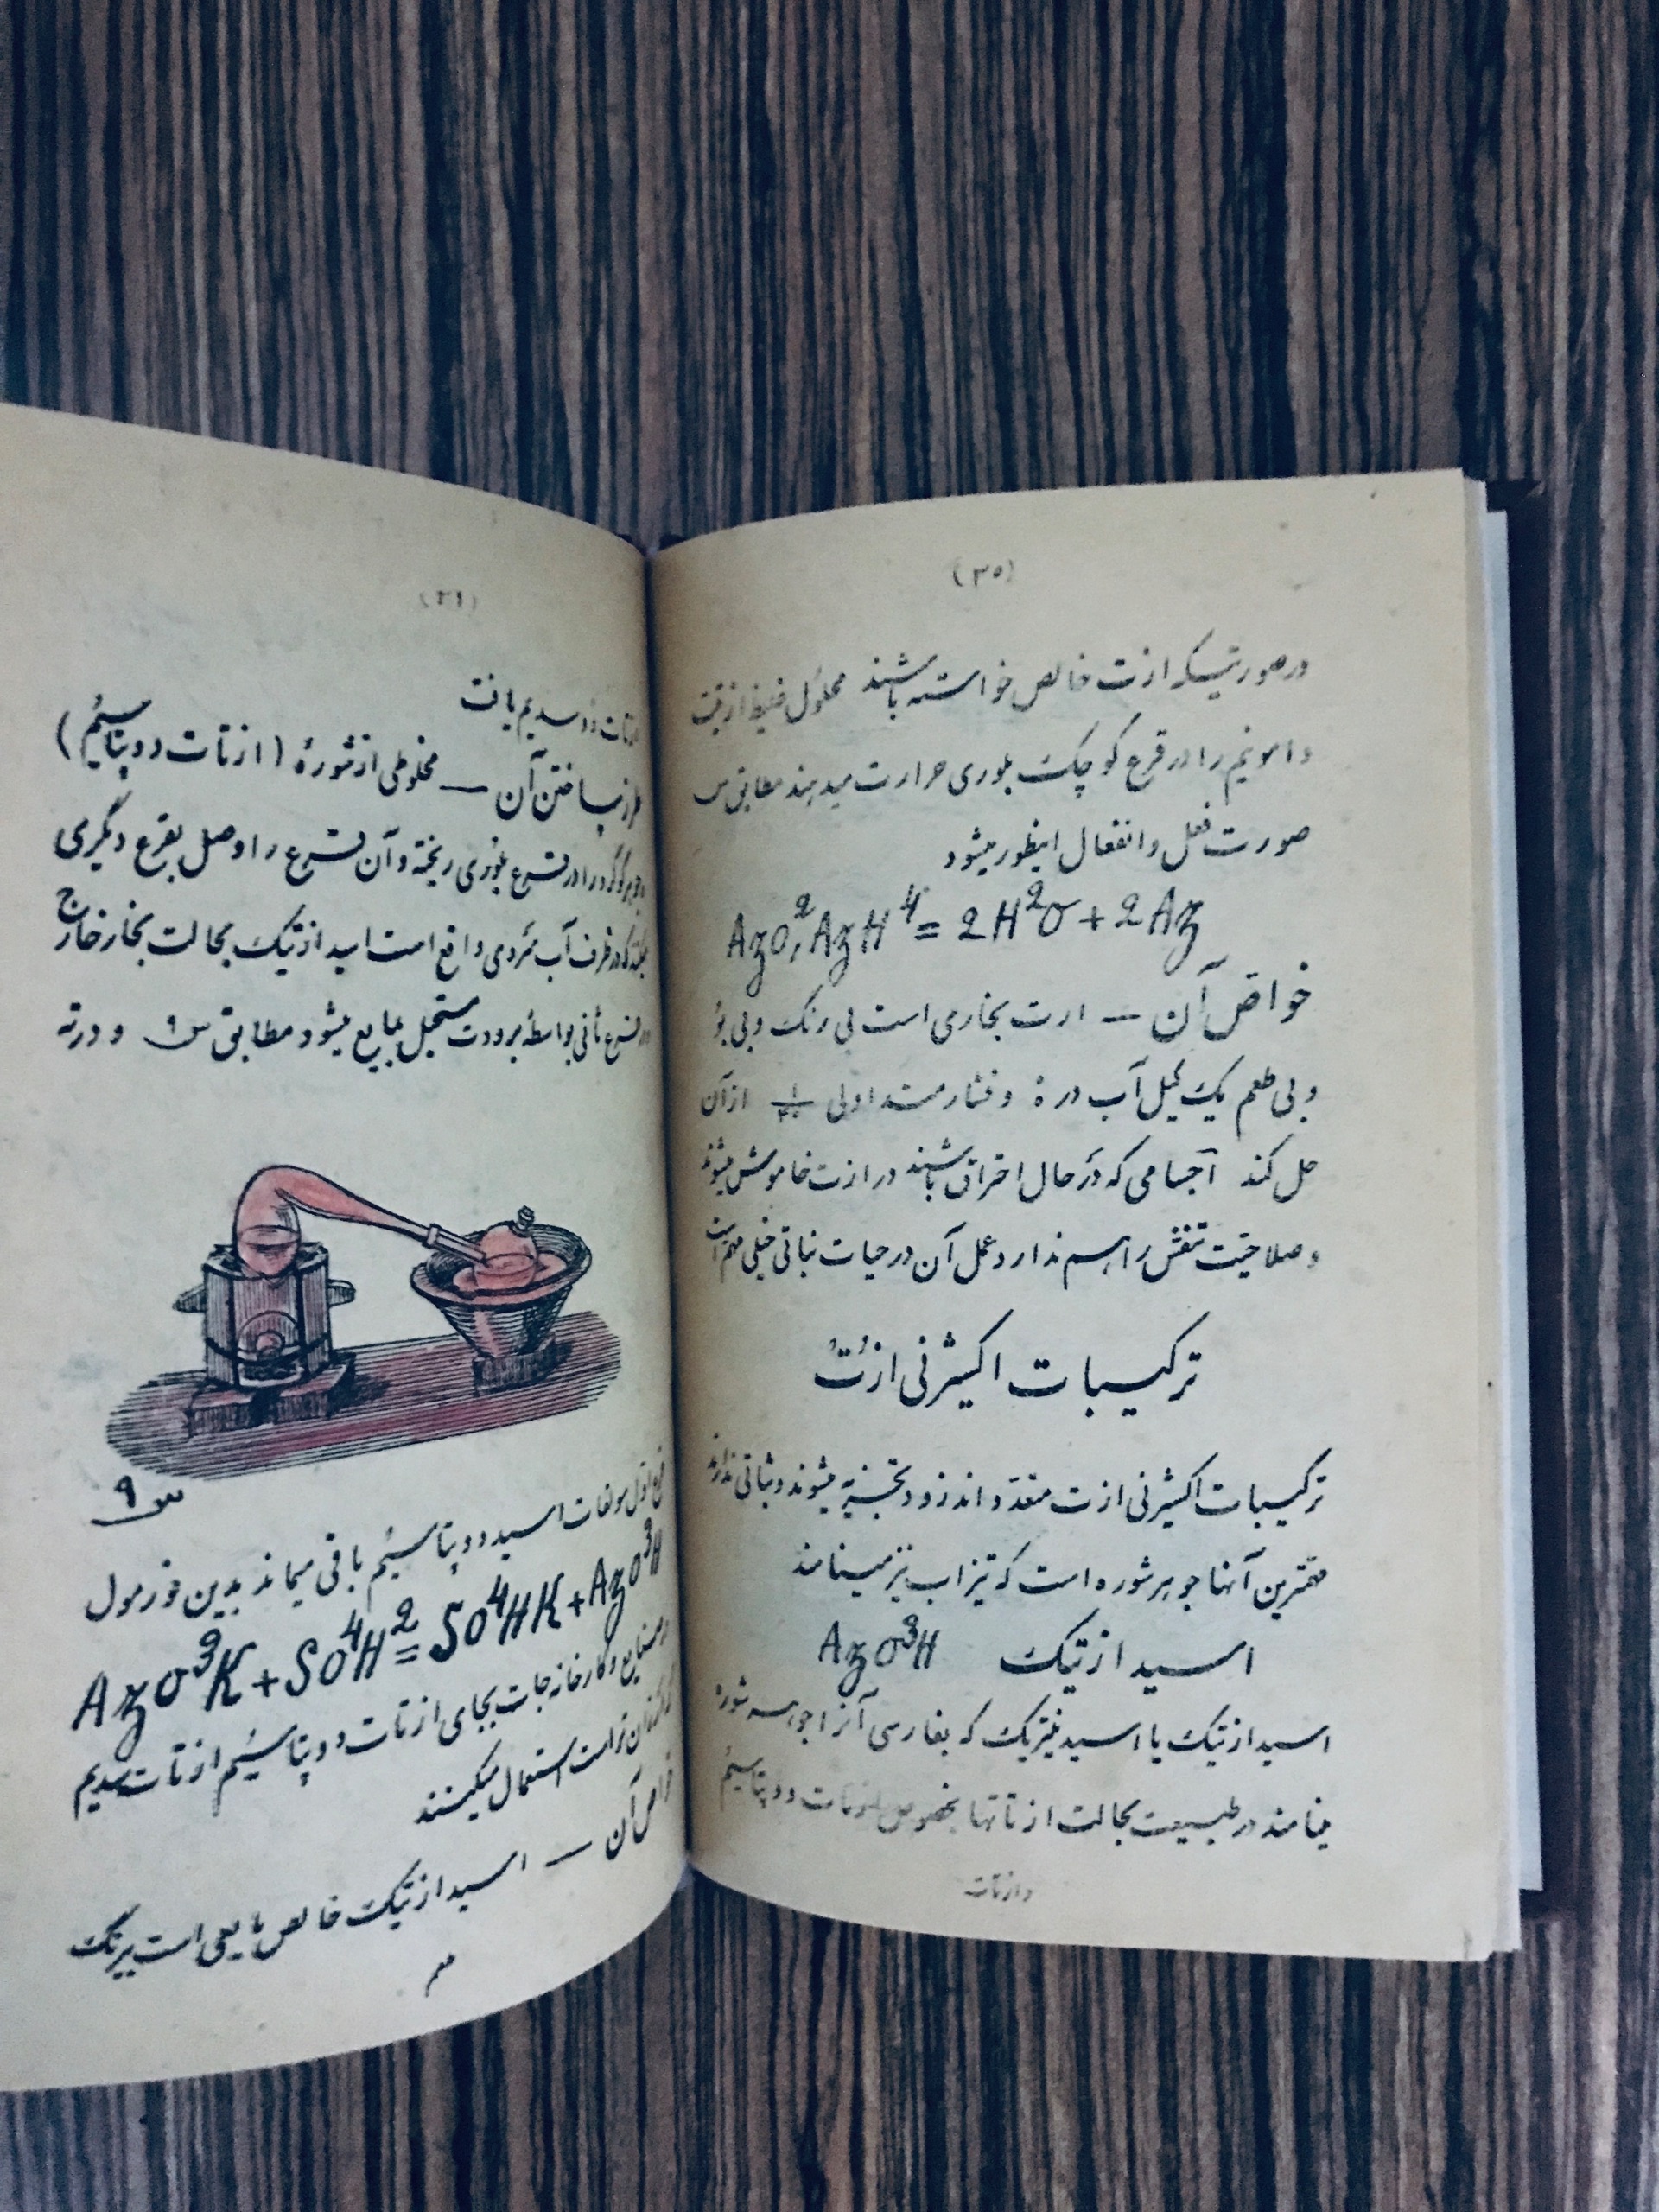 (۳۵)
در صورتیکه ازت خالص خواسته باشند محلول غلیظ ازتیت
دامونیم را در قرع کوچک بلوری حرارت میدهند مطابق س
صورت فعل و انفعال اینطور میشود
AzO²,AzH⁴ = 2H²O + 2Az
خواص آن — ازت بخاری است بی رنگ و بی بو
و بی طعم یک کیل آب در ۰ و فشار متداولی از آن
حل کند اجسامی که در حال احتراق باشند در ازت خاموش میشوند
و صلاحیت تنفس را هم ندارد عمل آن در حیات نباتی خیلی مهم است
ترکیبات اکسیژنی ازت
ترکیبات اکسیژنی ازت متعدد اند زود تجزیه میشوند و ثباتی ندارند
مهمترین آنها جوهر شوره است که تیزاب نیز مینامند
اسید ازتیک AzO³H
اسید ازتیک یا اسید نیتریک که بفارسی آنرا جوهر شوره
مینامند در طبیعت بحالت ازتاتها بخصوص ازتات دو پتاسیم
و ازتات
(۳۶)
ازتات دو سدیم یافت
طرز ساختن آن — مخلوطی از شوره (ازتات دو پتاسیم)
و جوهر گوگرد را در قرع بلوری ریخته و آن قرع را وصل بقرع دیگری
که در ظرف آب سردی واقع است اسید ازتیک بحالت بخار خارج
در قرع ثانی بواسطه برودت مستحیل بمایع میشود مطابق س ۹ و در ته
س ۹
قرع اول سولفات اسید دو پتاسیم باقی میماند بدین فورمول
AzO³K + SO⁴H² = SO⁴HK + AzO³H
در صنایع و کارخانه جات بجای ازتات دو پتاسیم ازتات سدیم
که ارزان تر است استعمال میکنند
خواص آن — اسید ازتیک خالص مایعی است بیرنگ